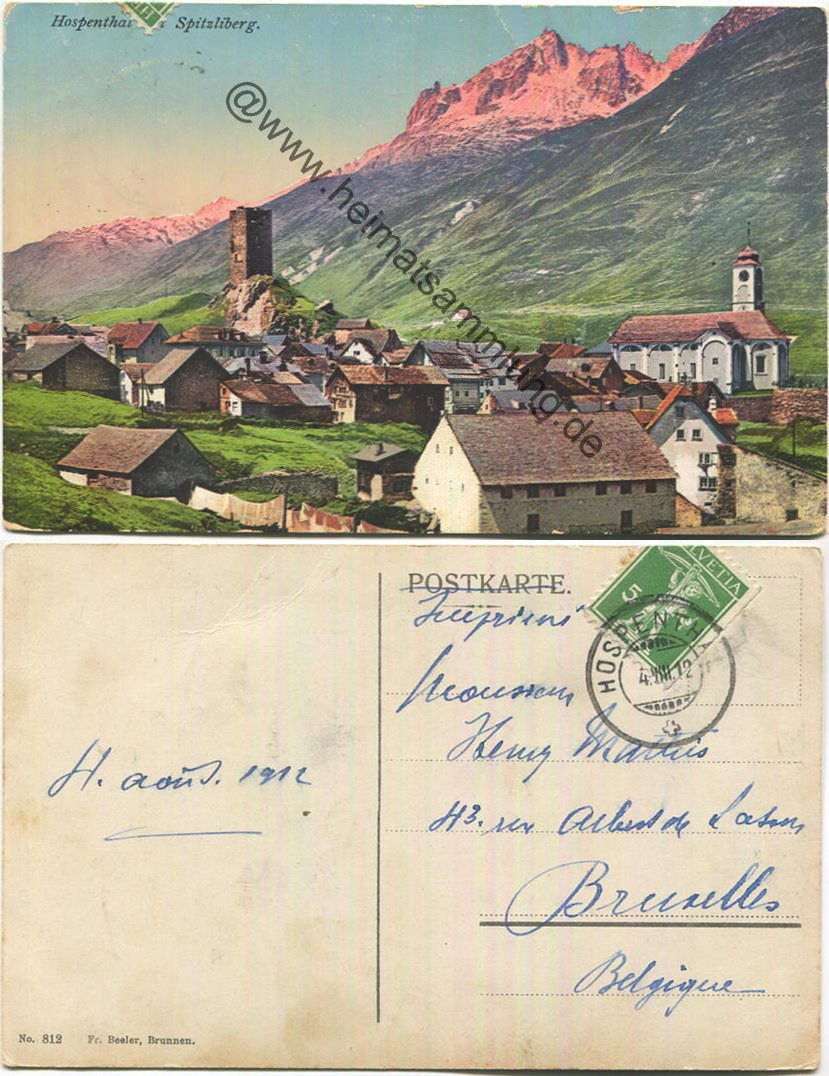 Hospenthal Spitzliberg.
@www.heimatsammlung.de
POSTKARTE.
Imprimé
HELVETIA
5
HOSPENTHAL
4.VIII.12
Monsieur
Henry
4. août. 1912
43. rue Albert de Latour
Bruxelles
Belgique
No. 812 Fr. Beeler, Brunnen.